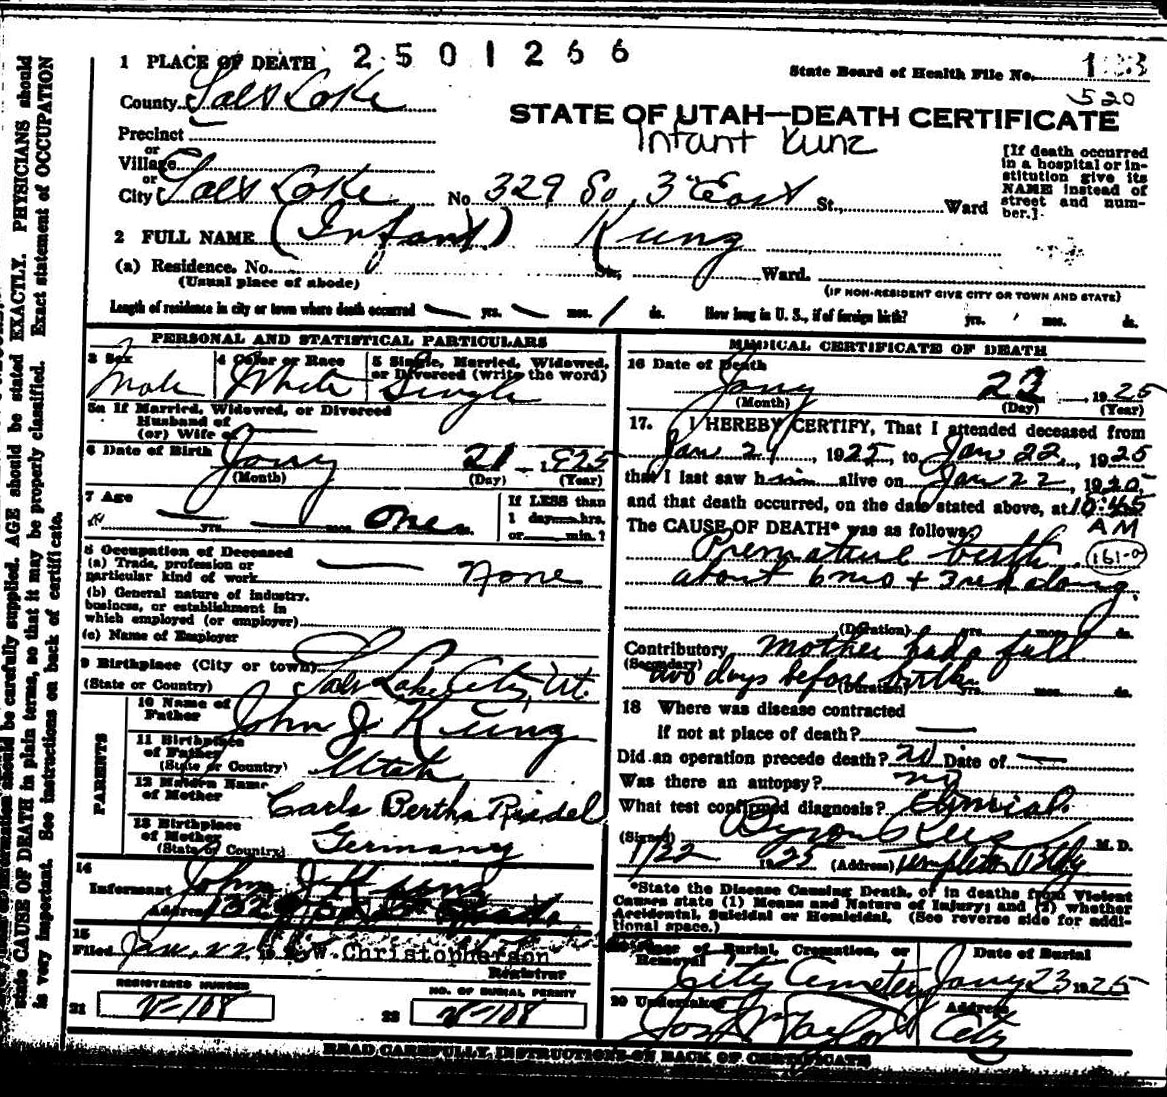 2501266
1 PLACE OF DEATH
State Board of Health File No.
520
County Salt Lake
STATE OF UTAH—DEATH CERTIFICATE
Infant Kunz
Precinct
or
Village
or
City Salt Lake No. 329 So, 3rd East St., Ward
[If death occurred in a hospital or institution give its NAME instead of street and number.]
2 FULL NAME (Infant) Kunz
(a) Residence. No. St., Ward.
(Usual place of abode)
(IF NON-RESIDENT GIVE CITY OR TOWN AND STATE)
Length of residence in city or town where death occurred — yrs. — mos. 1 ds. How long in U. S., if of foreign birth? yrs. mos. ds.
PERSONAL AND STATISTICAL PARTICULARS
3 Sex
Male
4 Color or Race
White
5 Single, Married, Widowed, or Divorced (write the word)
Single
5a If Married, Widowed, or Divorced
Husband of
(or) Wife of —
6 Date of Birth Jany 21 - 1925
(Month) (Day) (Year)
7 Age
— yrs. — mos. One ds.
If LESS than
1 day hrs.
or min.?
8 Occupation of Deceased
(a) Trade, profession or
particular kind of work — None
(b) General nature of industry,
business, or establishment in
which employed (or employer)
(c) Name of Employer
9 Birthplace (City or town)
(State or Country) Salt Lake City, Ut.
PARENTS
10 Name of
Father John J. Kunz
11 Birthplace
of Father
(State or Country) Utah
12 Maiden Name
of Mother Carla Bertha Riedel
13 Birthplace
of Mother
(State or Country) Germany
14
Informant John J Kunz
Address
15
Filed Jan. 22 W. Christopherson
Registrar
REGISTERED NUMBER
21 V-108
NO. OF BURIAL PERMIT
22 V-108
MEDICAL CERTIFICATE OF DEATH
16 Date of Death
Jany 22, 1925
(Month) (Day) (Year)
17. I HEREBY CERTIFY, That I attended deceased from
Jan 21, 1925, to Jan 22, 1925
that I last saw him alive on Jan 22, 1925
and that death occurred, on the date stated above, at 10:45
AM
The CAUSE OF DEATH* was as follows:
Premature birth
161-a
about 6 mo + 3 wks along.
(Duration) yrs. mos. ds.
Contributory Mother had a fall
(Secondary)
two days before birth
(Duration) yrs. mos. ds.
18 Where was disease contracted
if not at place of death? —
Did an operation precede death? no Date of —
Was there an autopsy? no
What test confirmed diagnosis? Clinical
(Signed) Byron Rees M. D.
1/22 1925 (Address) Templeton Bldg
*State the Disease Causing Death, or in deaths from Violent
Causes state (1) Means and Nature of Injury; and (2) whether
Accidental, Suicidal or Homicidal. (See reverse side for additional space.)
Place of Burial, Cremation, or
Removal
City Cemetery
Date of Burial
Jany 23 1925
20 Undertaker
Jos Wm Taylor
Address
City
READ CAREFULLY, INSTRUCTIONS ON BACK OF CERTIFICATE
information should be carefully supplied. AGE should be stated EXACTLY. PHYSICIANS should
state CAUSE OF DEATH in plain terms, so that it may be properly classified. Exact statement of OCCUPATION
is very important. See instructions on back of certificate.